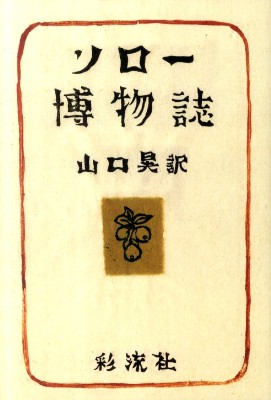 ソロー
博物誌
山口晃訳
彩流社